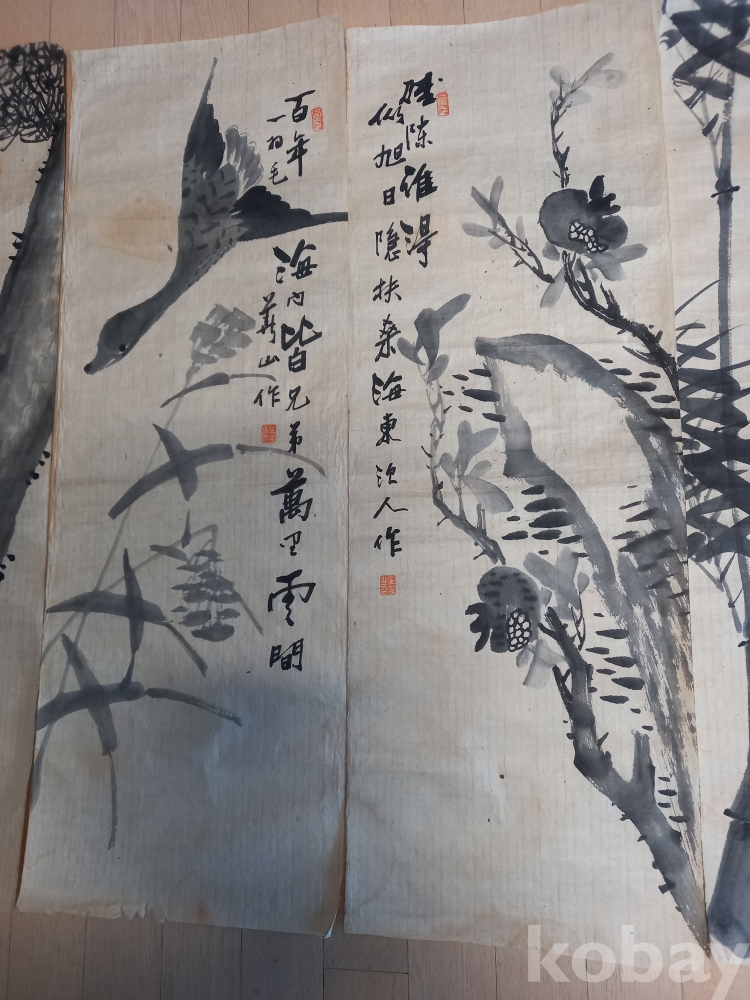 陳誰得
旭日隱扶桑海東人作
百年
一羽毛
海内皆兄弟萬里雲間
山作
kobay